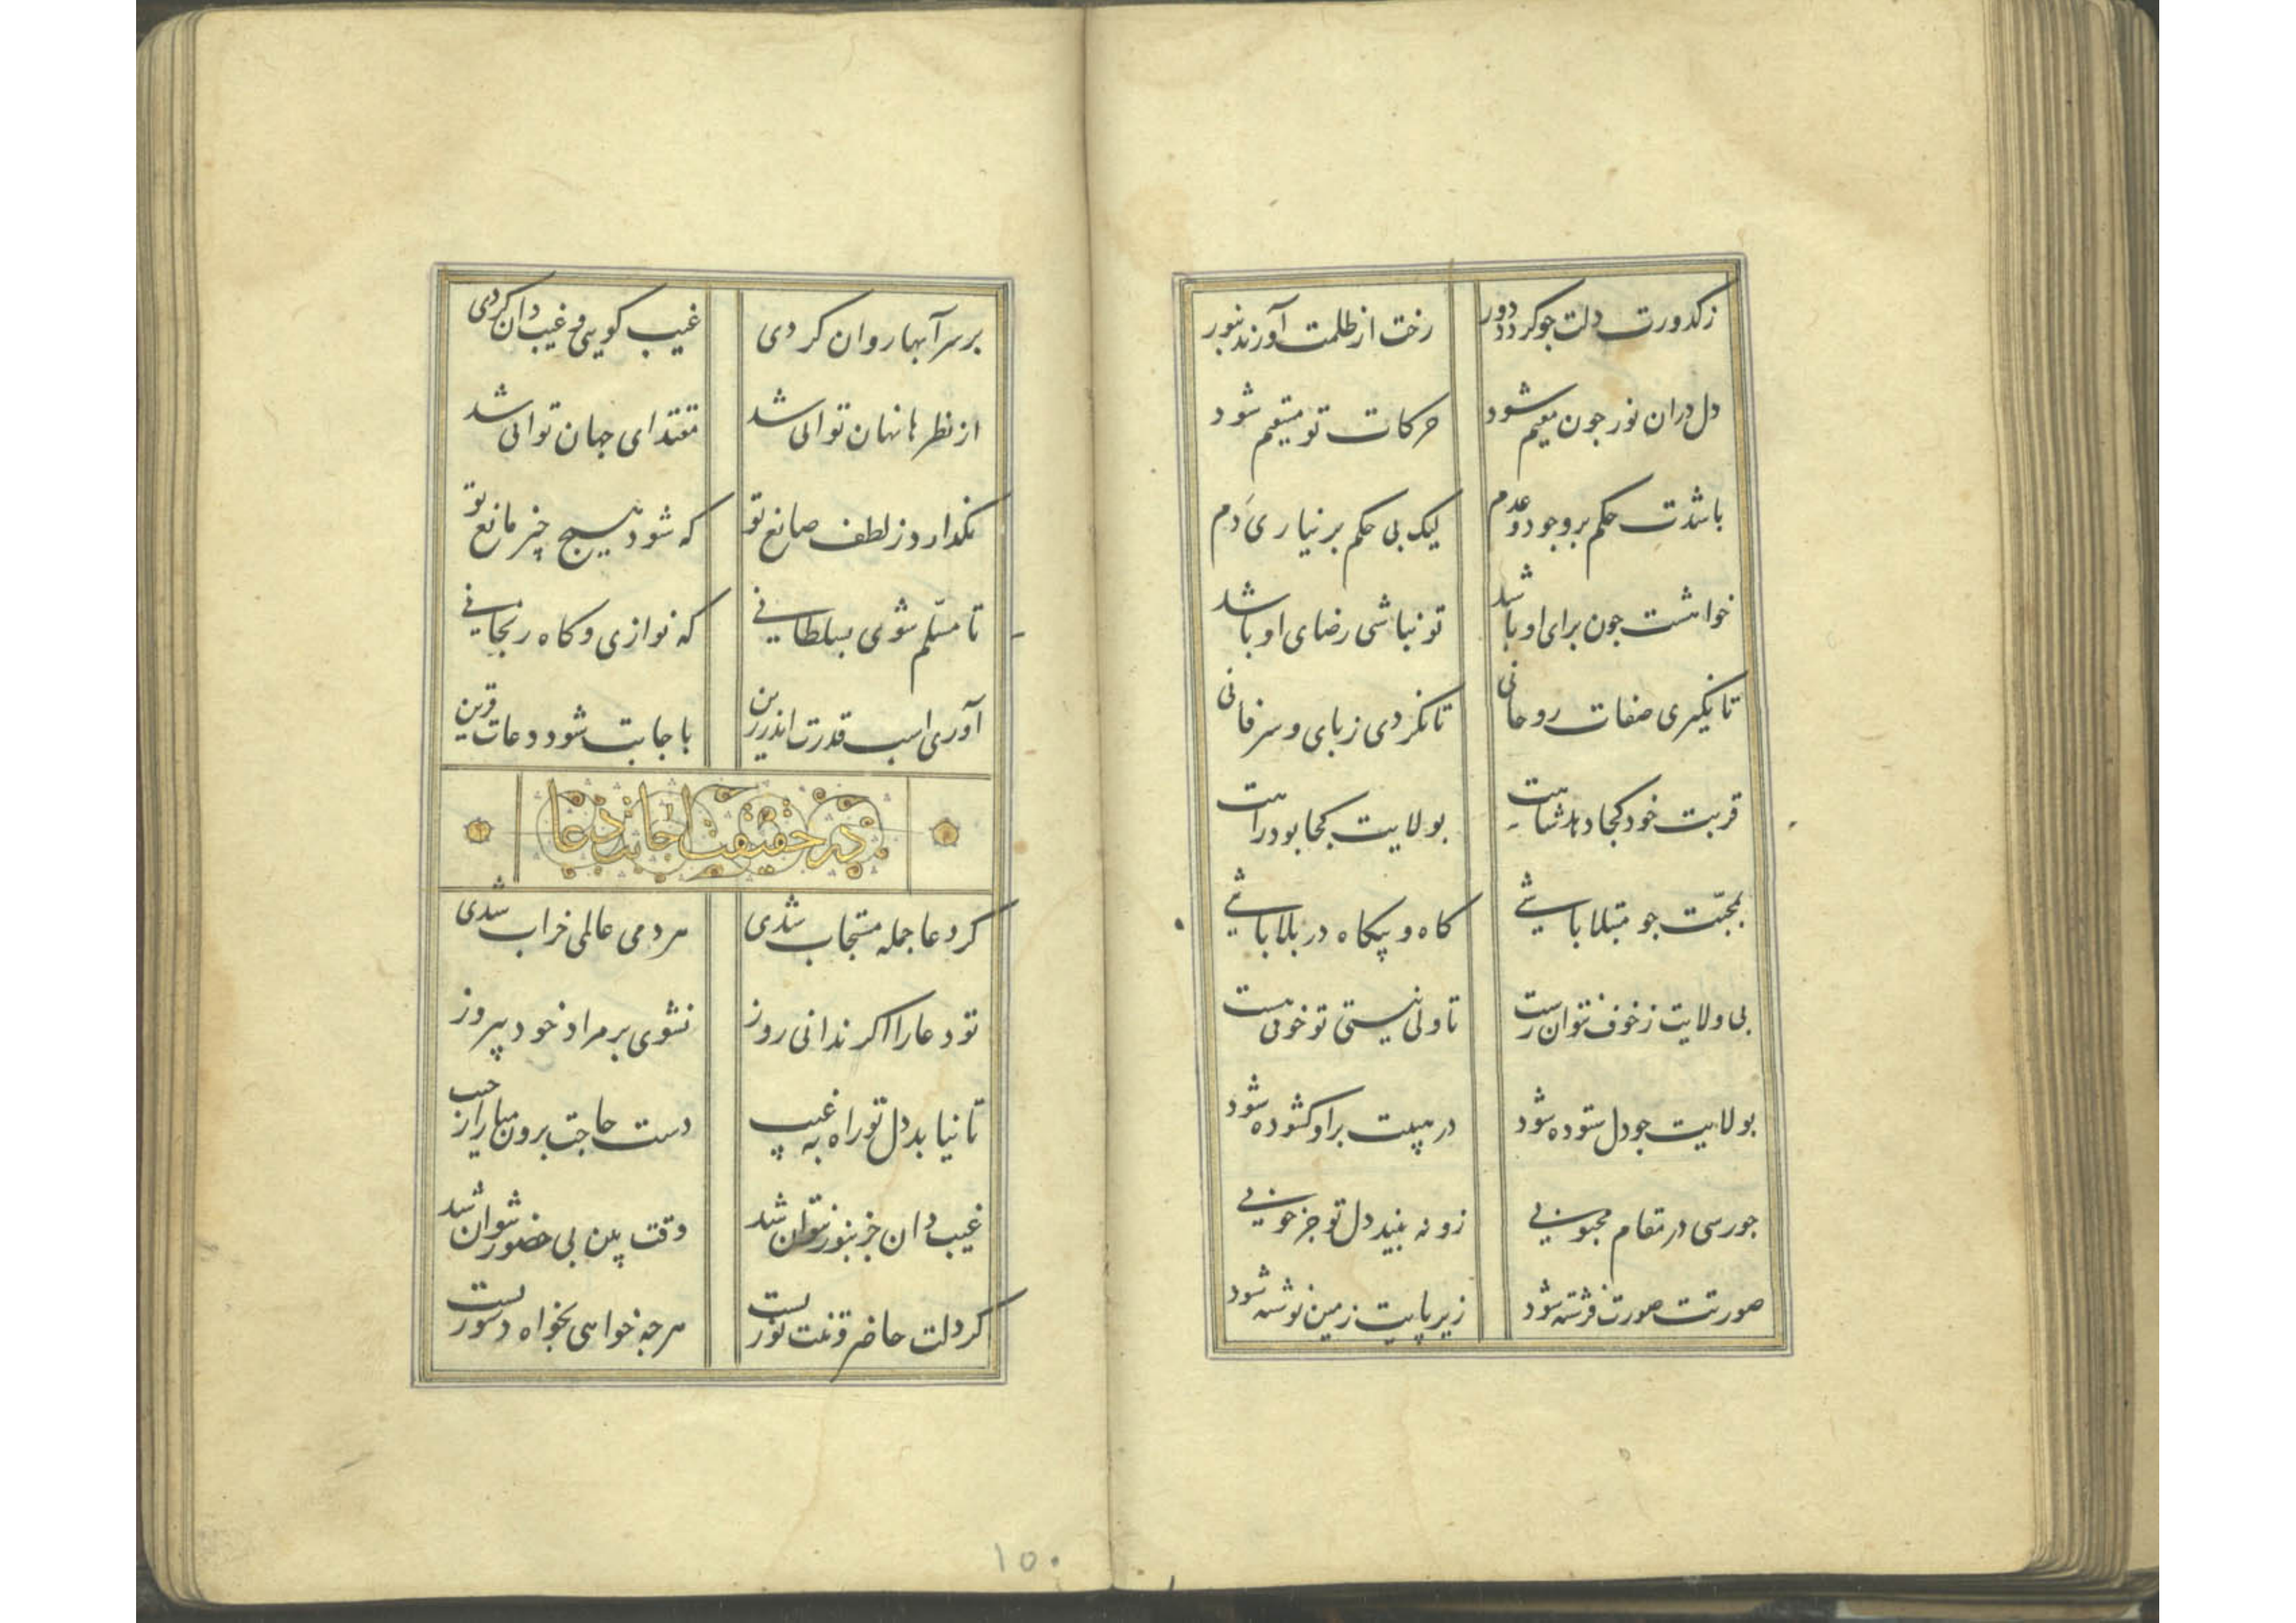 زکدورت دلت جو کردد دور
رخت از ظلمت آورند بنور
دل دران نور جون مقیم شود
حرکات تو مستقیم شود
باشدت حکم بر وجود و عدم
لیک بی حکم بر نیاری دم
خواهشت جون برای او باشد
تو نباشی رضای او باشد
تا نکیری صفات روحانی
تا نکردی ز پای و سر فانی
قربت خود کجا دهد شاهت
بولایت کجا بود راهت
بمحبت جو مبتلا باشی
کاه و بیکاه در بلا باشی
بی ولایت ز خوف نتوان رست
تا ولی نیستی تو خوفی هست
بولایت جو دل ستوده شود
در هیبت برو کشوده شود
جو رسی در مقام محبوبی
زو نه بیند دل تو جز خوبی
صورتت صورت فرشته شود
زیر پایت زمین نوشته شود
بر سر آبها روان کردی
غیب کویی و غیب دان کردی
از نظرها نهان توانی شد
مقتدای جهان توانی شد
نکذارد ز لطف صانع تو
که شود هیج چیز مانع تو
تا مسلم شوی بسلطانی
که نوازی و کاه رنجانی
آوری اسب قدرت اندر زین
باجابت شود دعات قرین
در حقیقت اجابت دعا
کر دعا جمله مستجاب شدی
هر دمی عالمی خراب شدی
تو دعا را اکر ندانی روز
نشوی بر مراد خود پیروز
تا نیابد دل تو راه به غیب
دست حاجت برون میار از جیب
غیب دان جز بنور نتوان شد
وقت بین بی حضور نتوان شد
کر دلت حاضرست وقت نورست
هرجه خواهی بخواه دستورست
۱۵۰